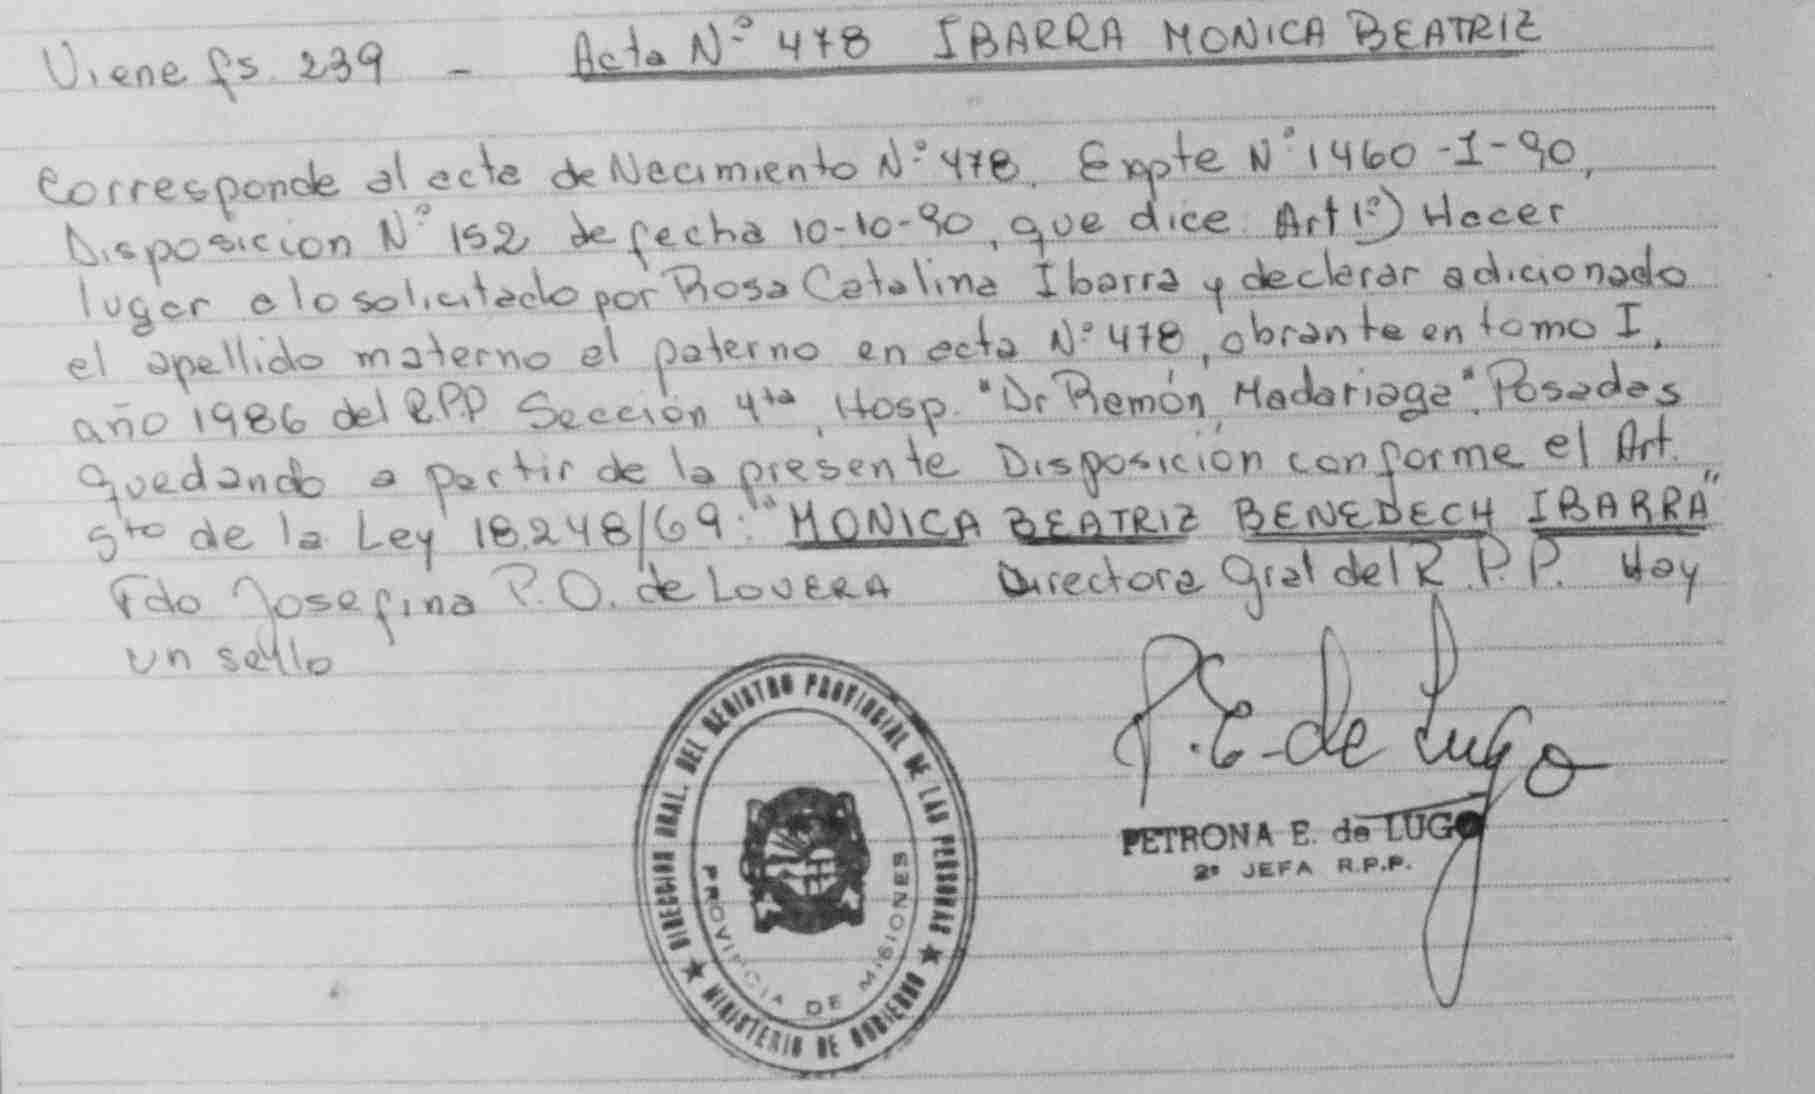 Viene fs. 239 - Acta Nº 478 IBARRA MONICA BEATRIZ
Corresponde al acta de Nacimiento Nº 478. Expte Nº 1460-I-90,
Disposicion Nº 152 de fecha 10-10-90, que dice: Art 1º) Hacer
lugar a lo solicitado por Rosa Catalina Ibarra y declarar adicionado
el apellido materno al paterno en acta Nº 478, obrante en tomo I,
año 1986 del R.P.P Sección 4ta, Hosp. "Dr Ramón Madariaga". Posadas
quedando a partir de la presente Disposición conforme el Art.
5to de la Ley 18.248/69: "MONICA BEATRIZ BENEDECH IBARRA"
Fdo Josefina P.O. de LOVERA Directora Gral del R.P.P. Hay
un sello
DIRECCION GRAL. DEL REGISTRO PROVINCIAL DE LAS PERSONAS
PROVINCIA DE MISIONES
MINISTERIO DE GOBIERNO
P.E. de Lugo
PETRONA E. de LUGO
2º JEFA R.P.P.